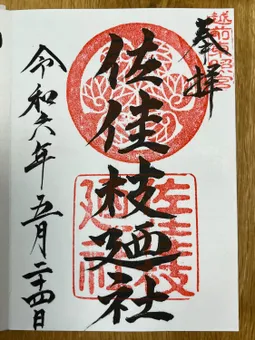 越前東照宮
奉拝
佐佳枝廼社
佐佳枝廼社
令和六年五月二十四日